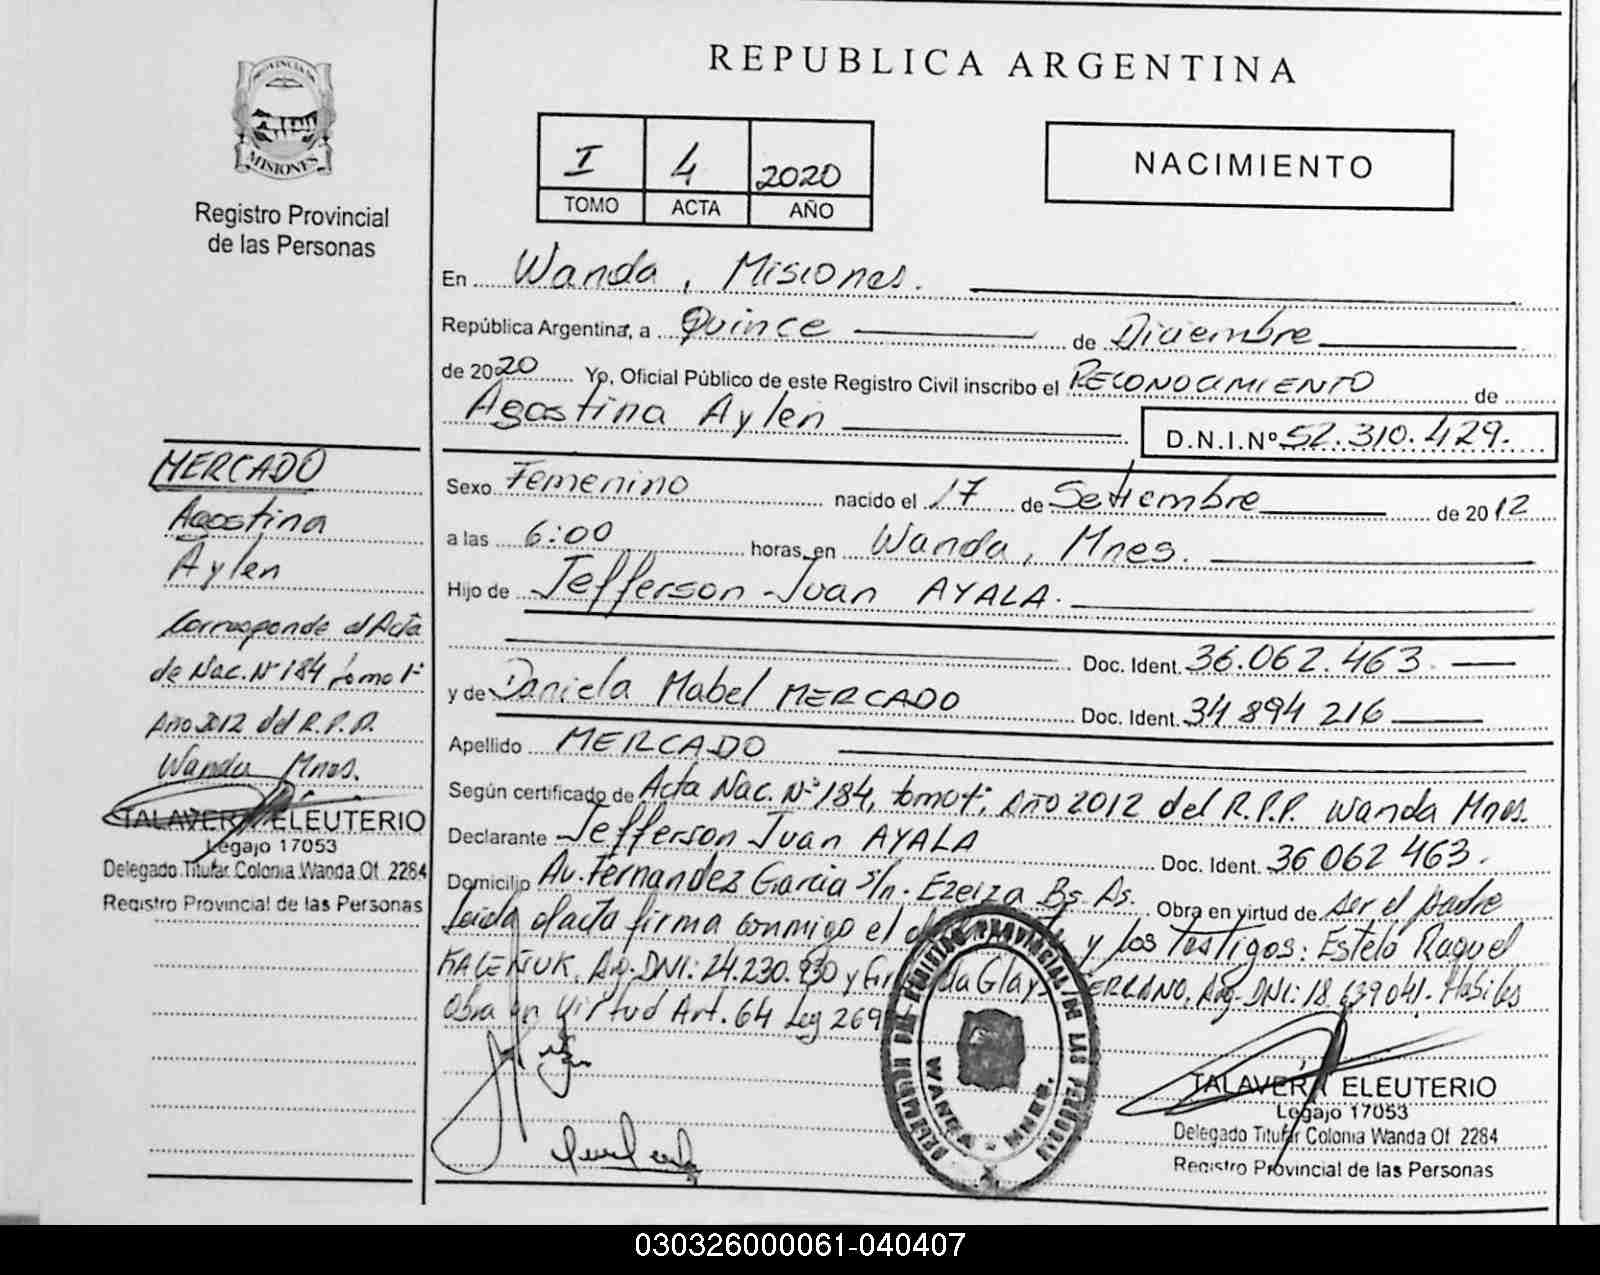 PROVINCIA DE
MISIONES
Registro Provincial
de las Personas
REPUBLICA ARGENTINA
I 4 2020
TOMO ACTA AÑO
NACIMIENTO
En Wanda, Misiones.
República Argentina, a Quince de Diciembre
de 2020 Yo, Oficial Público de este Registro Civil inscribo el RECONOCIMIENTO de
Agostina Aylen D.N.I.Nº 52.310.429.
Sexo Femenino nacido el 17 de Setiembre de 2012
a las 6:00 horas, en Wanda, Mnes.
Hijo de Jefferson Juan AYALA.
Doc. Ident. 36.062.463.
y de Daniela Mabel MERCADO Doc. Ident. 34 894 216
Apellido MERCADO
Según certificado de Acta Nac. Nº 184, tomo 1º, Año 2012 del R.P.P. Wanda Mnes.
Declarante Jefferson Juan AYALA Doc. Ident. 36 062 463.
Domicilio Av. Fernandez Garcia s/n. Ezeiza Bs. As. Obra en virtud de ser el padre
Leida el acta firma conmigo el y los Testigos: Estela Raquel
Arg. DNI: 24.230.930 y Arg. DNI: 18.639041. Habiles
Obra en Virtud Art. 64 Ley 269
MERCADO
Agostina
Aylen
Corresponde al Acta
de Nac. Nº 184 tomo 1º
Año 2012 del R.P.P.
Wanda Mnes.
TALAVERA ELEUTERIO
Legajo 17053
Delegado Titular Colonia Wanda Of. 2284
Registro Provincial de las Personas
PROVINCIAL DE LAS PERSONAS
WANDA - MNES.
TALAVERA ELEUTERIO
Legajo 17053
Delegado Titular Colonia Wanda Of. 2284
Registro Provincial de las Personas
030326000061-040407